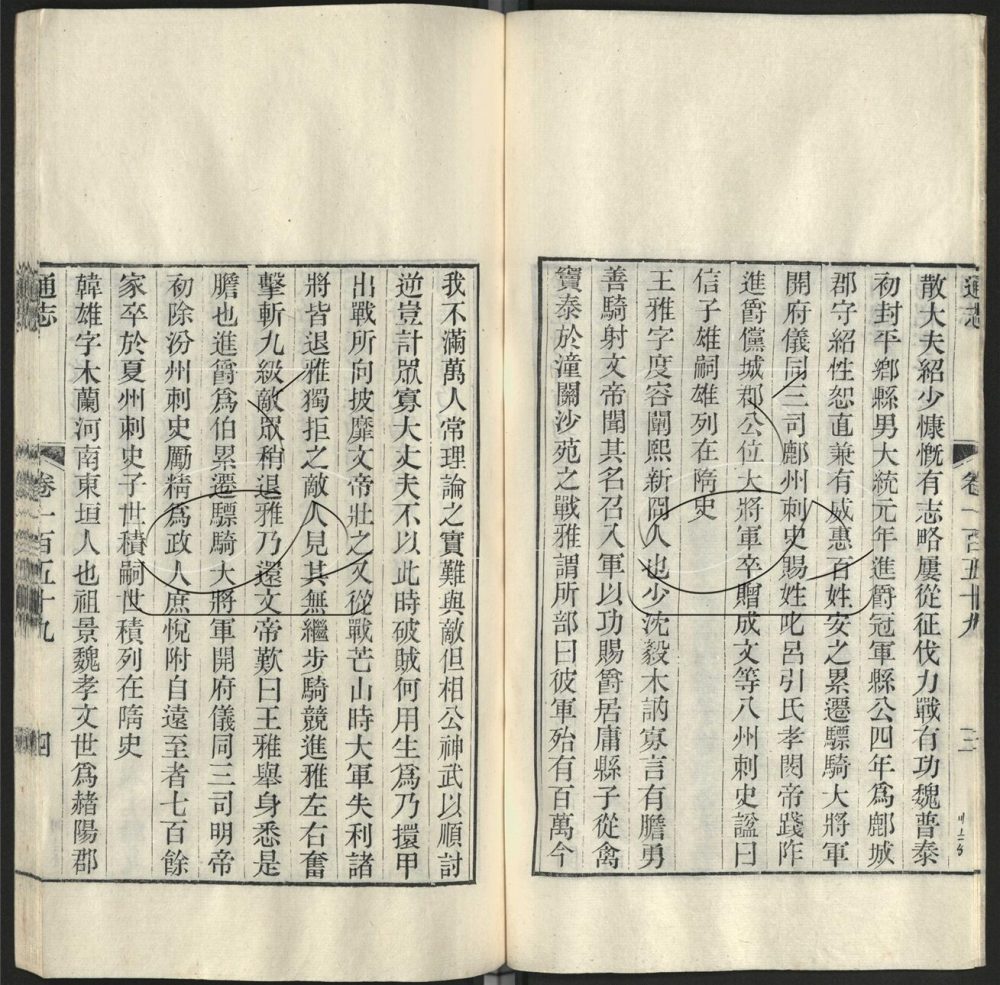 通志
卷一百五十九
三
散大夫紹少慷慨有志略屢從征伐力戰有功魏普泰
初封平鄉縣男大統元年進爵冠軍縣公四年爲鄜城
郡守紹性恕直兼有威惠百姓安之累遷驃騎大將軍
開府儀同三司鄜州刺史賜姓叱呂引氏孝閔帝踐阼
進爵儻城郡公位大將軍卒贈成文等八州刺史諡曰
信子雄嗣雄列在隋史
王雅字度容闡熙新𡇈人也少沈毅木訥寡言有膽勇
善騎射文帝聞其名召入軍以功賜爵居庸縣子從禽
竇泰於潼關沙苑之戰雅謂所部曰彼軍殆有百萬今
我不滿萬人常理論之實難與敵但相公神武以順討
逆豈計眾寡大丈夫不以此時破賊何用生爲乃擐甲
出戰所向披靡文帝壯之又從戰芒山時大軍失利諸
將皆退雅獨拒之敵人見其無繼步騎競進雅左右奮
擊斬九級敵眾稍退雅乃還文帝歎曰王雅舉身悉是
膽也進爵爲伯累遷驃騎大將軍開府儀同三司明帝
初除汾州刺史勵精爲政人庶悅附自遠至者七百餘
家卒於夏州刺史子世積嗣世積列在隋史
韓雄字木蘭河南東垣人也祖景魏孝文世爲赭陽郡
通志
卷一百五十九
四